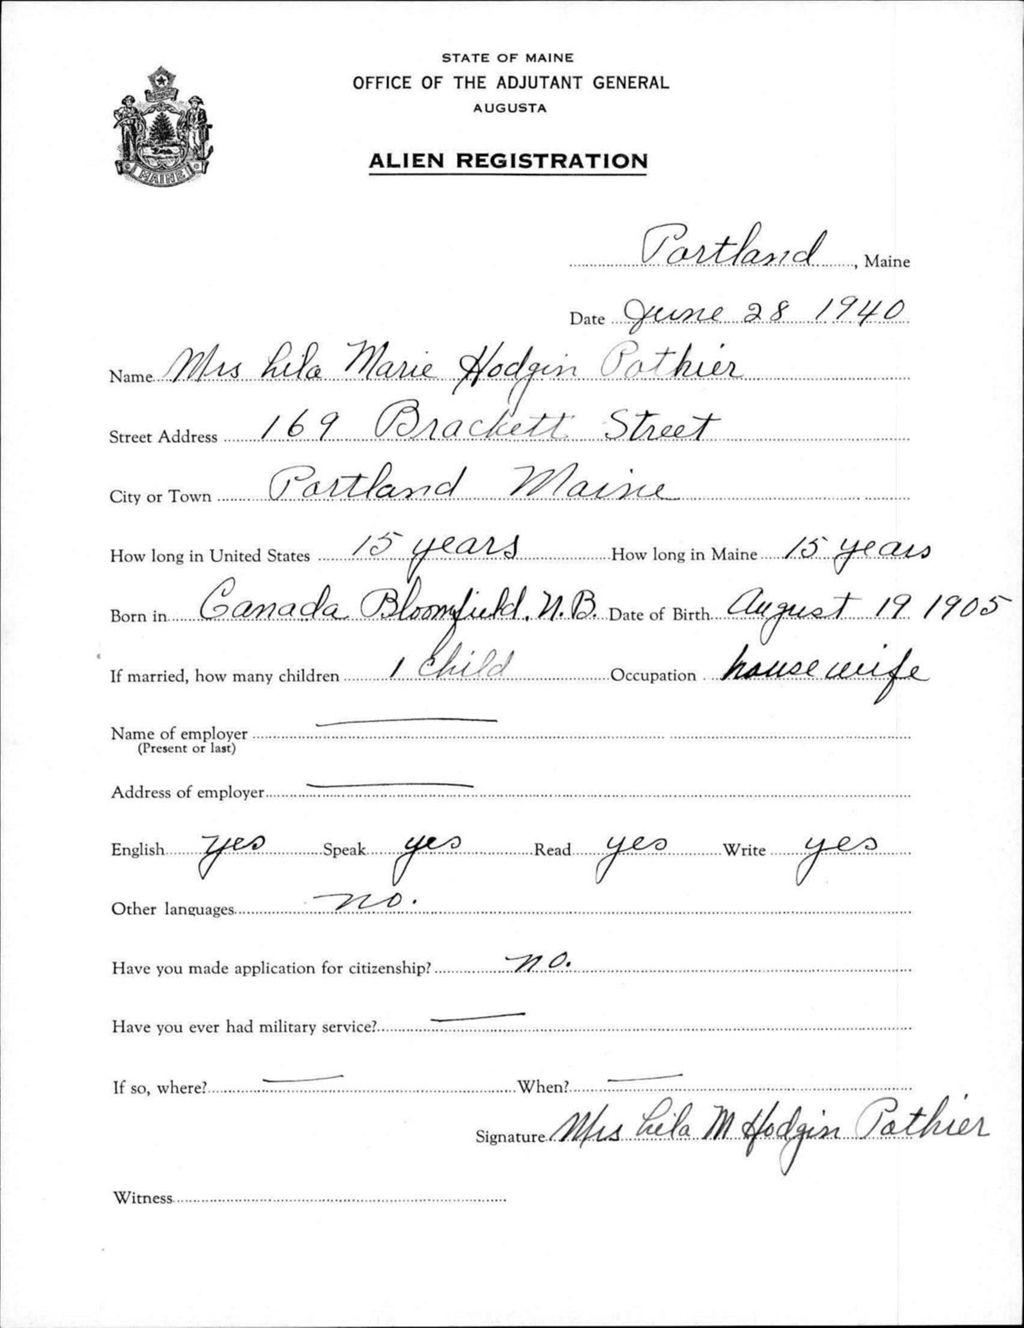 STATE OF MAINE
OFFICE OF THE ADJUTANT GENERAL
AUGUSTA
MAINE
ALIEN REGISTRATION
Portland, Maine
Date June 28 1940
Name Mrs Lila Marie Hodgin Pothier
Street Address 169 Brackett Street
City or Town Portland Maine
How long in United States 15 years How long in Maine 15 years
Born in Canada Bloomfield, N.B. Date of Birth August 19 1905
If married, how many children 1 child Occupation housewife
Name of employer
(Present or last)
Address of employer
English yes Speak yes Read yes Write yes
Other languages no.
Have you made application for citizenship? no.
Have you ever had military service?
If so, where? When?
Signature Mrs Lila M Hodgin Pothier
Witness